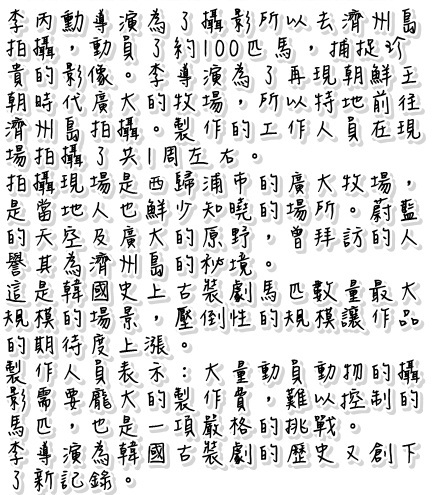 李丙勳導演為了攝影所以去濟州島
拍攝，動員了約100匹馬，捕捉珍
貴的影像。李導演為了再現朝鮮王
朝時代廣大的牧場，所以特地前往
濟州島拍攝。製作的工作人員在現
場拍攝了共1周左右。
拍攝現場是西歸浦市的廣大牧場，
是當地人也鮮少知曉的場所。蔚藍
的天空及廣大的原野，曾拜訪的人
譽其為濟州島的祕境。
這是韓國史上古裝劇馬匹數量最大
規模的場景，壓倒性的規模讓作品
的期待度上漲。
製作人員表示：大量動員動物的攝
影需要龐大的製作費，難以控制的
馬匹，也是一項嚴格的挑戰。
李導演為韓國古裝劇的歷史又創下
了新記錄。